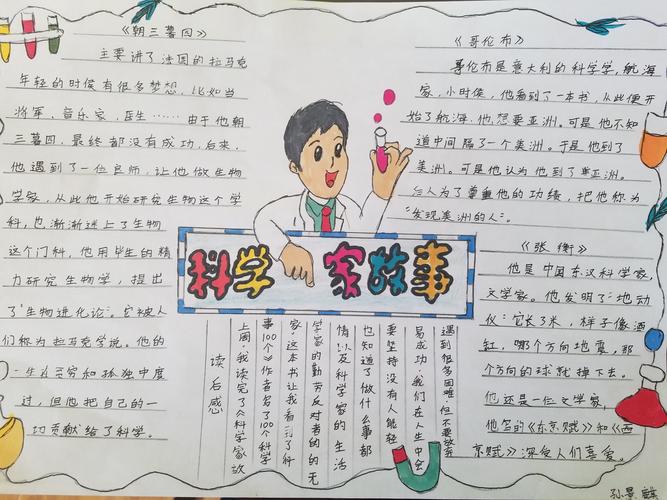 《朝三暮四》
主要讲了法国的拉马克
年轻的时候有很多梦想，比如当
将军，音乐家，医生……由于他朝
三暮四，最终都没有成功，后来，
他遇到了一位良师，让他做生物
学家，从此他开始研究生物这个学
科，也渐渐迷上了生物
这个门科，他用毕生的精
力研究生物学，提出
了"生物进化论"。它被人
们称为拉马克学说。他的
一生在贫穷和孤独中度
过，但他把自己的一
切贡献给了科学。
《哥伦布》
哥伦布是意大利的科学学，航海
家，小时候，他看到了一本书，从此便开
始了航海，他想要亚洲。可是他不知
道中间隔了一个美洲。于是他到了
美洲。可是他认为他到了亚洲。
后人为了尊重他的功绩，把他称为
"发现美洲的人"。
科学家故事
《张衡》
他是中国东汉科学家，
文学家。他发明了：地动
仪：它长了米，样子像酒
缸，哪个方向地震，那
个方向的球就掉下去。
他还是一位文学家，
他写的《东京赋》和《西
京赋》深受人们喜爱。
读后感
上周，我读完了《科学家故
事100个》作者名了100个科学
家，这本书让我看到了科
学家的勤劳反对者的的无
情以及科学家的生活
也知道了做什么事都
要坚持没有人能轻
易成功，我们在人生中会
遇到很多困难，但不要放弃
孙景